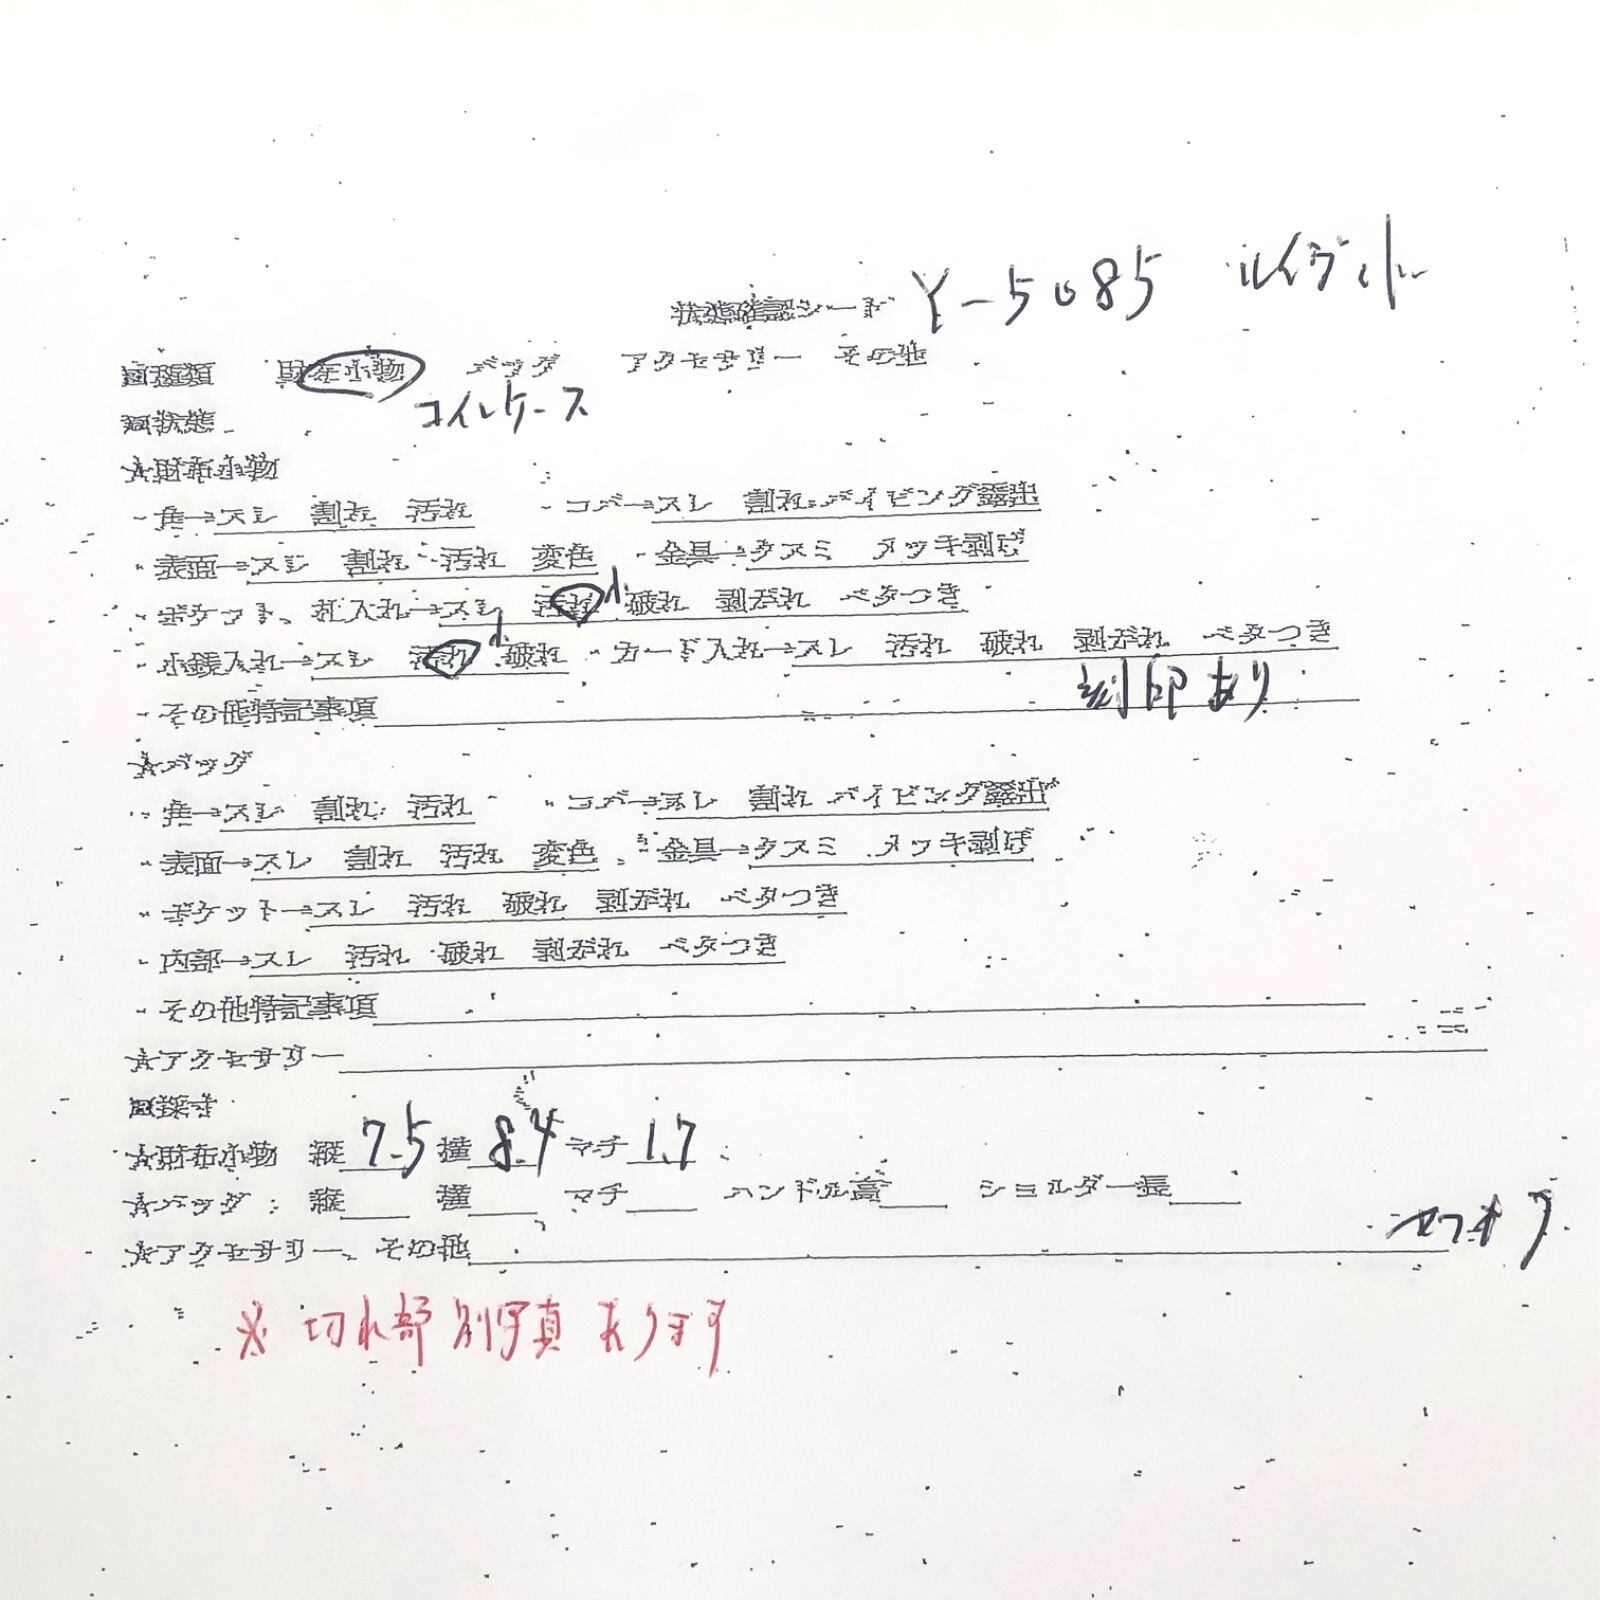 状態確認シート Y-5085 ルイヴィトン
■種類 財布小物 バッグ アクセサリー その他
コインケース
■状態
☆財布小物
・角→スレ 割れ 汚れ ・コバ→スレ 割れ パイピング露出
・表面→スレ 割れ 汚れ 変色 ・金具→クスミ メッキ剥げ
・ポケット、札入れ→スレ 汚れ 破れ 剥がれ ベタつき
・小銭入れ→スレ 汚れ 破れ ・カード入れ→スレ 汚れ 破れ 剥がれ ベタつき
・その他特記事項 刻印あり
☆バッグ
・角→スレ 割れ 汚れ ・コバ→スレ 割れ パイピング露出
・表面→スレ 割れ 汚れ 変色 ・金具→クスミ メッキ剥げ
・ポケット→スレ 汚れ 破れ 剥がれ ベタつき
・内部→スレ 汚れ 破れ 剥がれ ベタつき
・その他特記事項
☆アクセサリー
■採寸
☆財布小物 縦 7.5 横 8.4 マチ 1.7
☆バッグ:縦 横 マチ ハンドル高 ショルダー長
☆アクセサリー、その他
※ 切れ部 別写真 あります